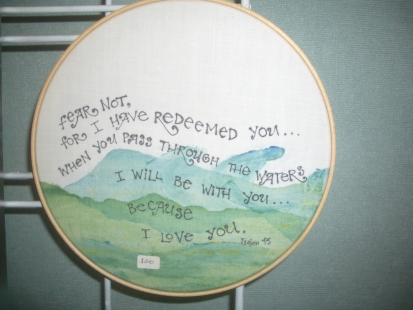 FEAR NOT,
for I HAVE REDEEMED YOU...
WHEN YOU PASS THROUGH THE WATERS
I WILL BE WITH YOU...
BECAUSE
I LOVE YOU.